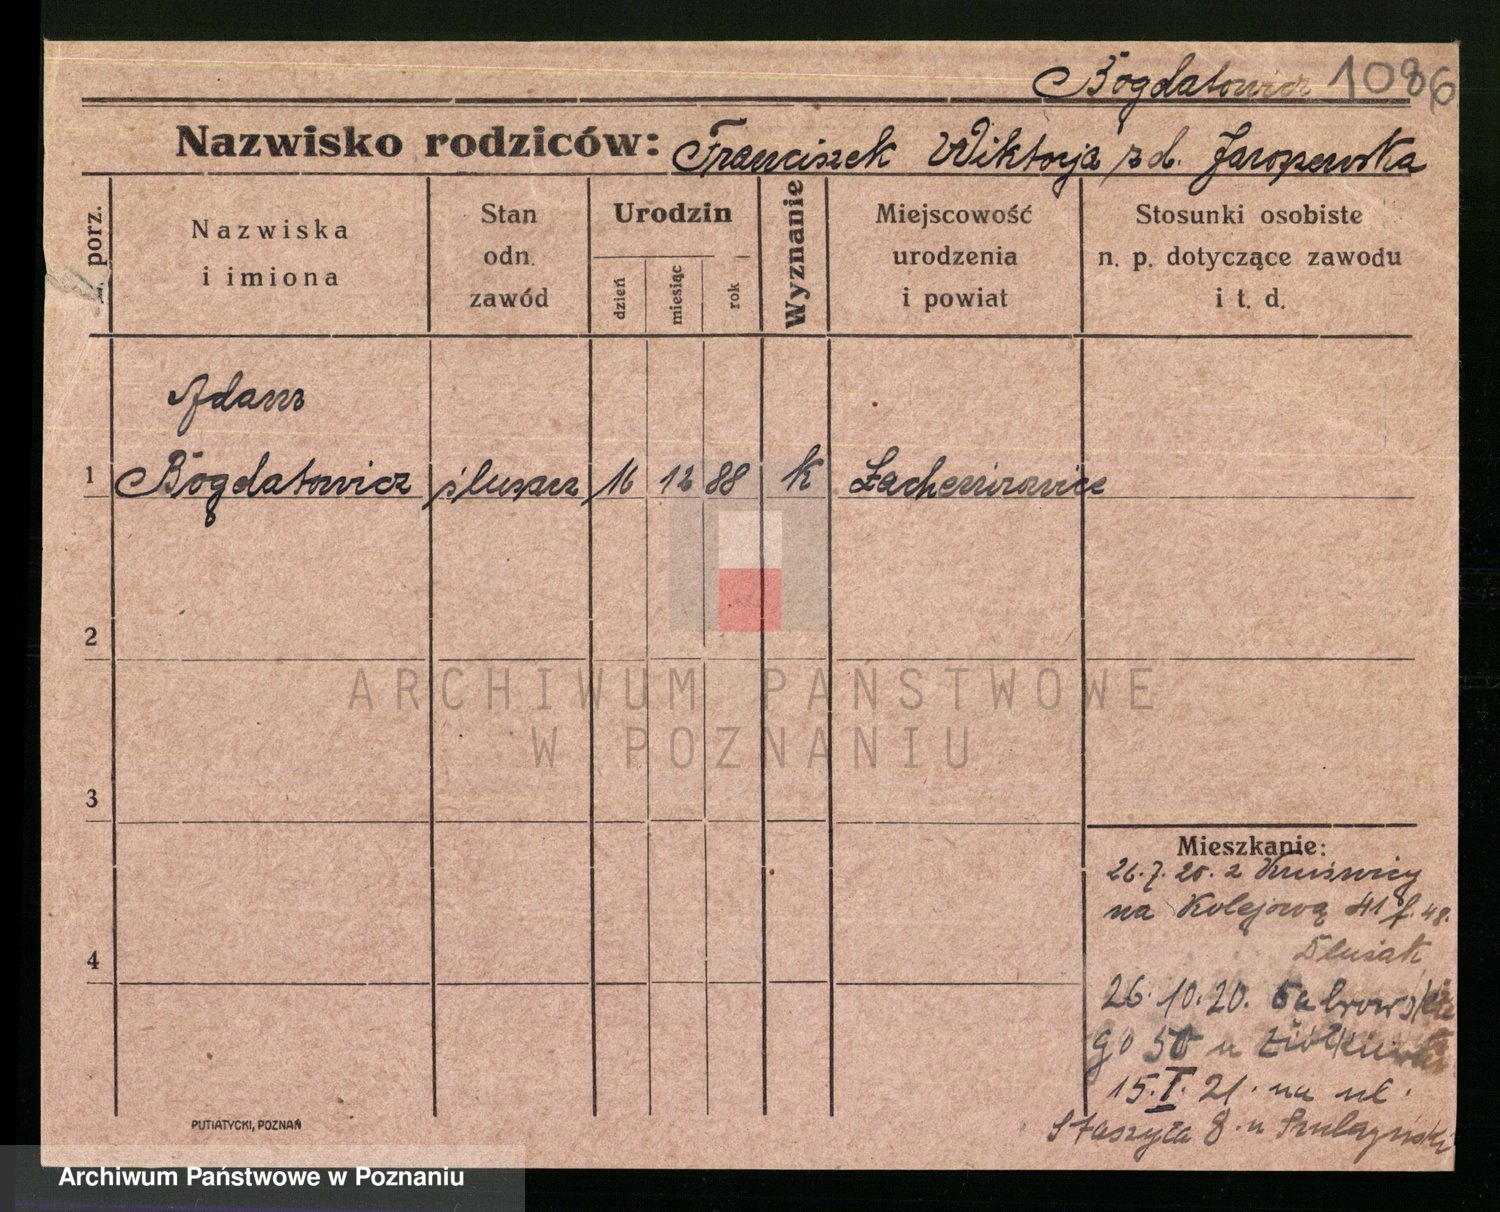 Bogdatowicz 1086
Nazwisko rodziców: Franciszek Wiktorja z d. Jaroszewska
porz.
Nazwiska
i imiona
Stan
odn.
zawód
Urodzin
dzień
miesiąc
rok
Wyznanie
Miejscowość
urodzenia
i powiat
Stosunki osobiste
n. p. dotyczące zawodu
i t. d.
Adam
1 Bogdatowicz ślusarz 16 12 88 k Zachemirowice
2
3
4
ARCHIWUM PAŃSTWOWE
W POZNANIU
Mieszkanie:
26.7.20. z Kruświcy
na Kolejową 41 f. 48.
26.10.20.
go 50 u
15.I.21. na ul.
Staszyca 8. u
PUTIATYCKI, POZNAŃ
Archiwum Państwowe w Poznaniu